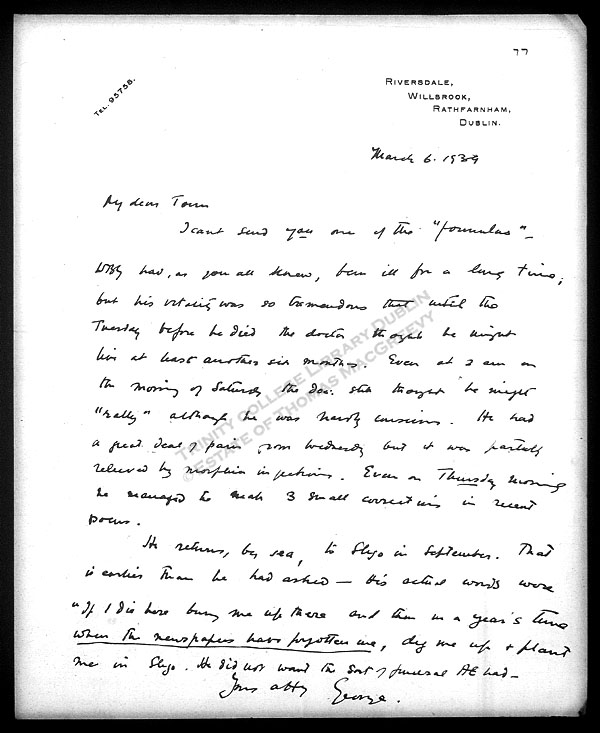 77
TEL. 95758.
RIVERSDALE,
WILLBROOK,
RATHFARNHAM,
DUBLIN.
March 6. 1939
My dear Tom
I cant send you one of the "formulas" -
WBY had, as you all know, been ill for a long time;
but his vitality was so tremendous that until the
Tuesday before he died the doctor thought he might
live at least another six months. Even at 2 am on
the morning of Saturday the doc. still thought he might
"rally" although he was hardly conscious. He had
a great deal of pain from Wednesday but it was partly
relieved by morphia injections. Even on Thursday morning
he managed to make 3 small corrections in recent
poems.
He returns, by sea, to Sligo in September. That
is earlier than he had asked — His actual words were
"If I die here bury me up there and then in a year's time
when the newspapers have forgotten me, dig me up & plant
me in Sligo. He did not want the sort of funeral AE had -
Yours affly George.
TRINITY COLLEGE LIBRARY DUBLIN
© ESTATE OF THOMAS MACGREEVY